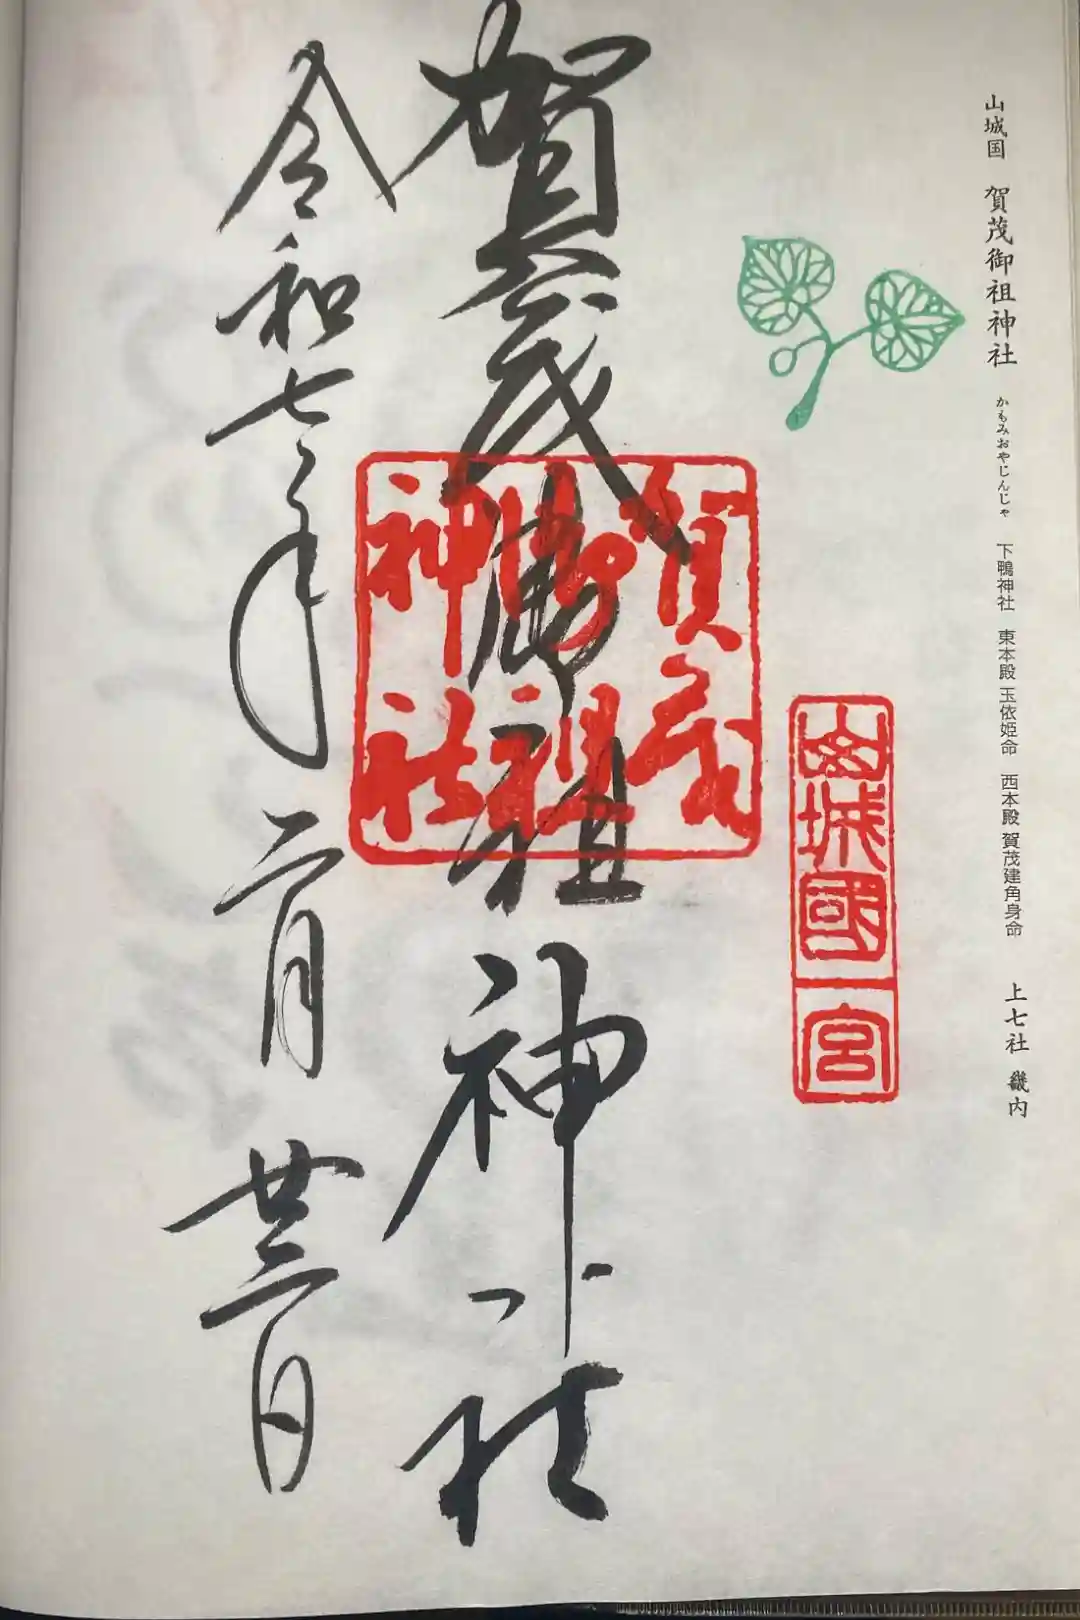 山城国 賀茂御祖神社 かもみおやじんじゃ 下鴨神社 東本殿 玉依姫命 西本殿 賀茂建角身命 上七社 畿内
山城國一宮
賀茂御祖神社
賀茂
御祖
神社
令和七年二月廿三日